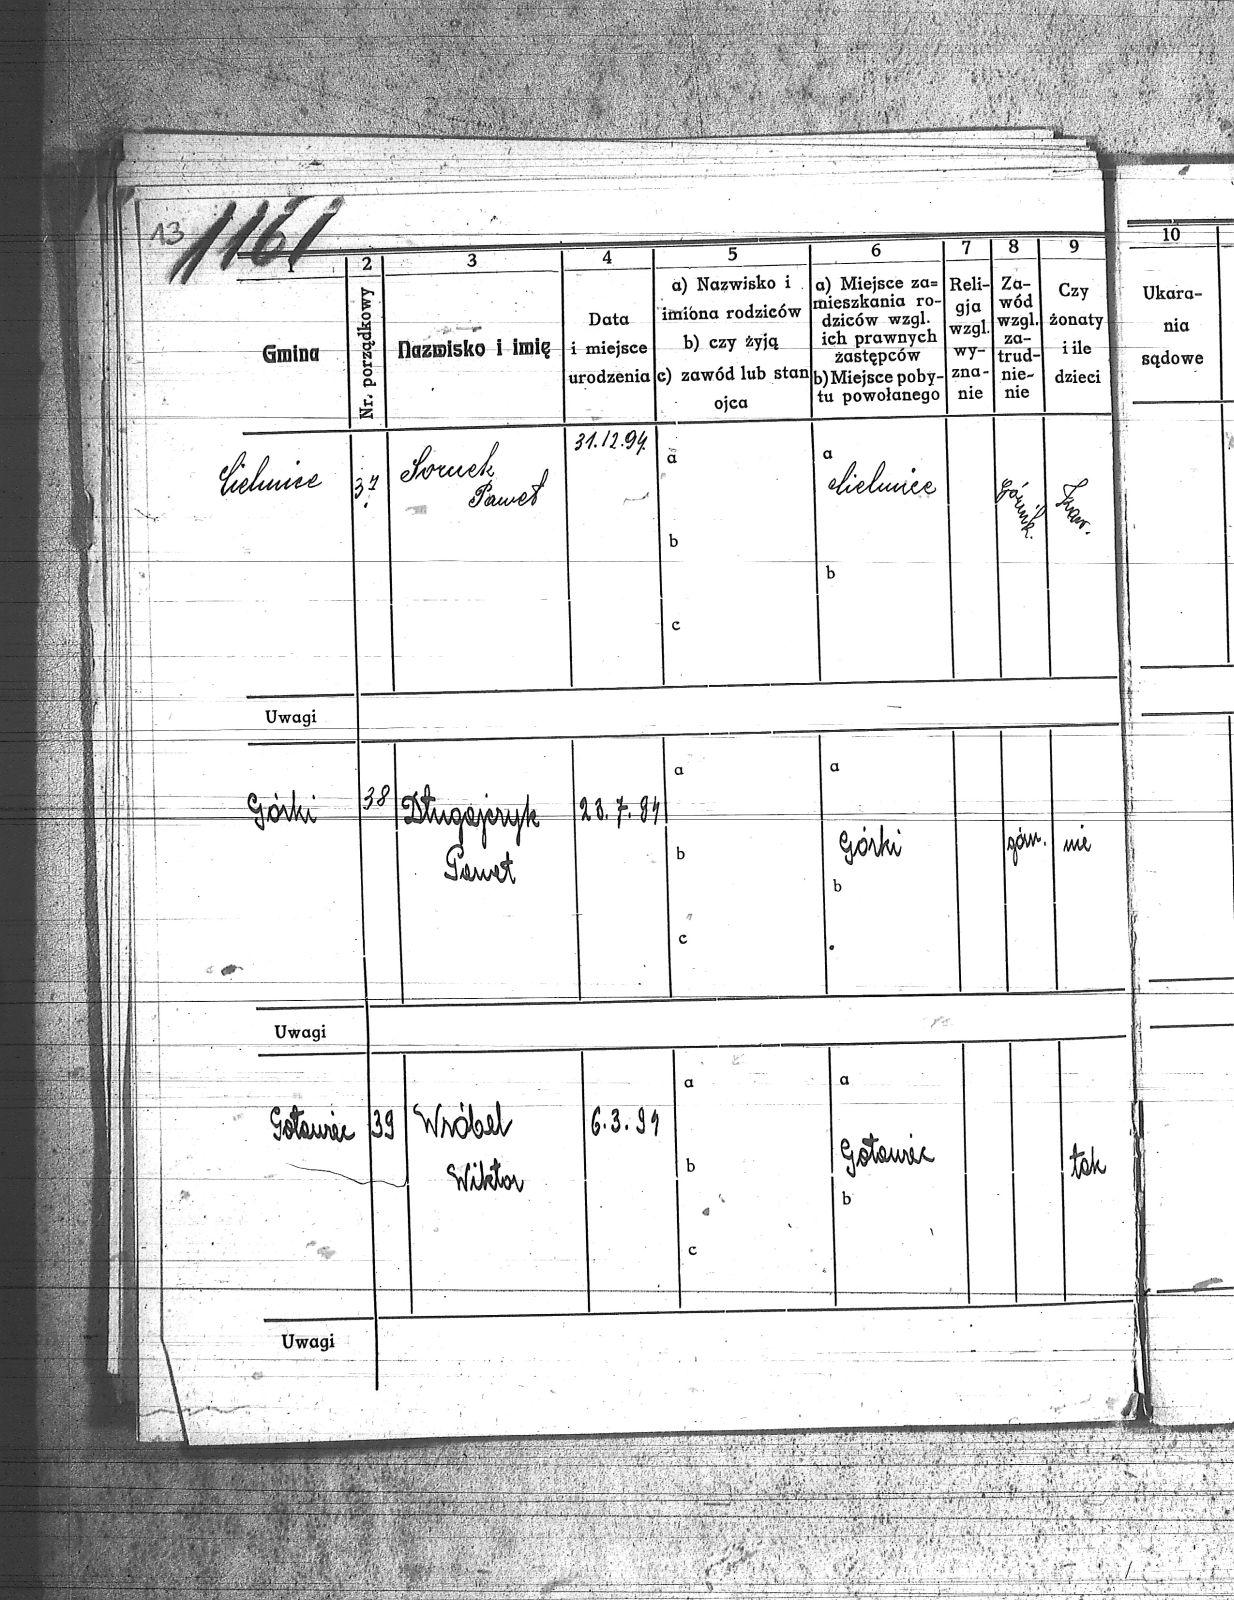 13 1161
1 2 3 4 5 6 7 8 9 10
Gmina
Nr. porządkowy
Nazwisko i imię
Data
i miejsce
urodzenia
a) Nazwisko i
imiona rodziców
b) czy żyją
c) zawód lub stan
ojca
a) Miejsce za=
mieszkania ro-
dziców wzgl.
ich prawnych
żastępców
b) Miejsce poby-
tu powołanego
Reli-
gja
wzgl.
wy-
zna-
nie
Za-
wód
wzgl.
za-
trud-
nie-
nie
Czy
żonaty
i ile
dzieci
Ukara-
nia
sądowe
Cielmice 37. 31.12.94. a a Cielmice górnik.
Paweł
b
b
c
Uwagi
Górki 38 Długajczyk 23.7.84 a a
Paweł b Górki górn. nie
b
c
Uwagi
Goławiec 39 Wróbel 6.3.94 a a
Wiktor b Goławiec tak
b
c
Uwagi